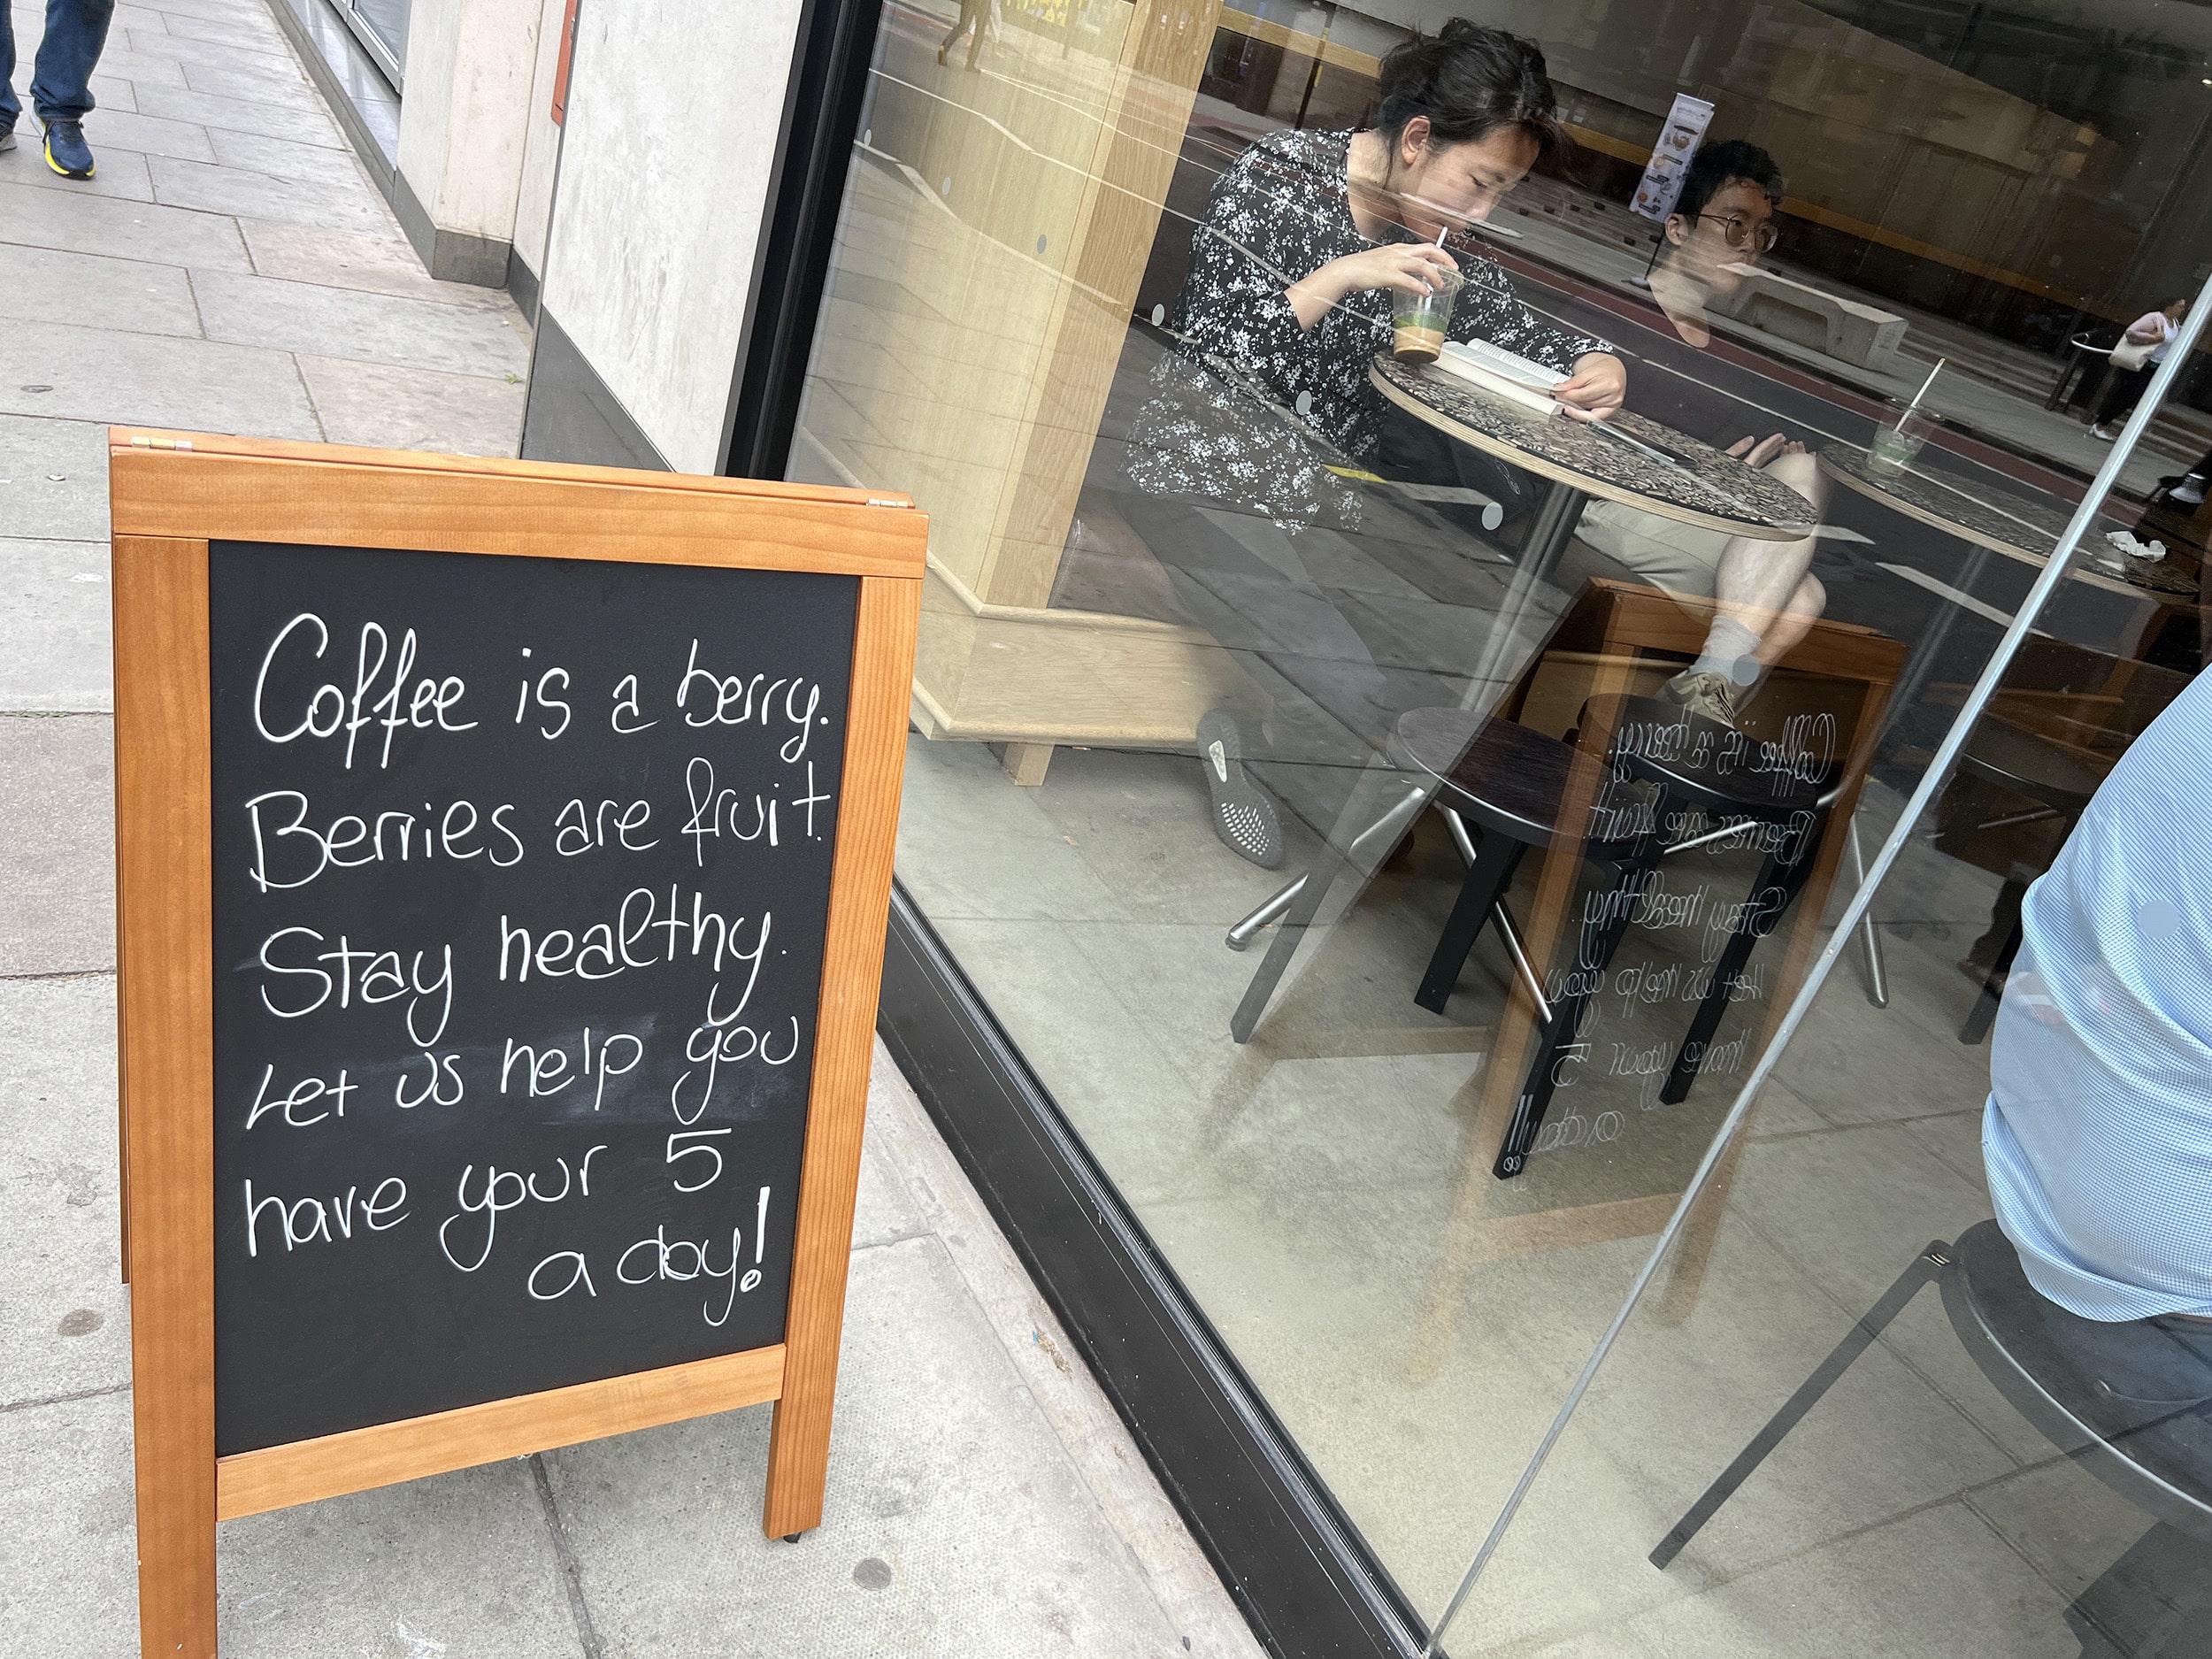 Coffee is a berry.
Berries are fruit.
Stay healthy.
Let us help you
have your 5
a day!